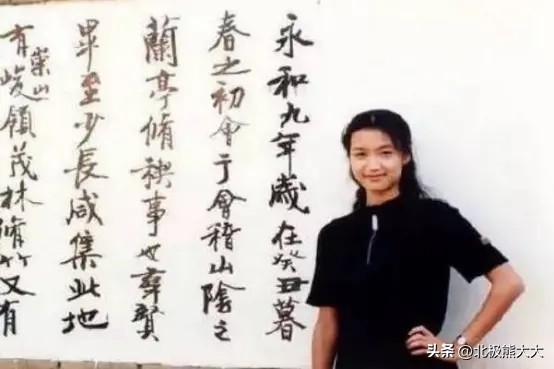 永和九年歲在癸丑暮
春之初會于會稽山陰之
蘭亭脩禊事也羣賢
畢至少長咸集此地
有崇山峻領茂林脩竹又有
头条 @北极熊大大